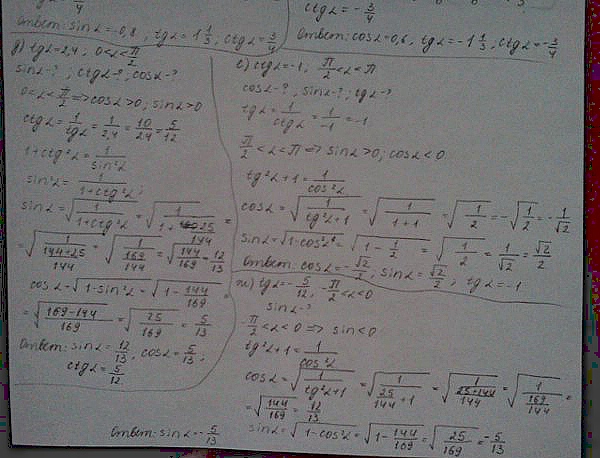 Ответ: sinα=-0,8, tgα=1 1/3; ctgα=3/4
ctgα=-3/4
Ответ: cosα=0,6, tgα=-1 1/3, ctgα=-3/4
д) tgα=2,4, 0<α<π/2
sinα-?; ctgα-?, cosα-?
0<α<π/2 => cosα>0; sinα>0
ctgα=1/tgα=1/2,4=10/24=5/12
1+ctg²α=1/sin²α
sin²α=1/(1+ctg²α);
sinα=√(1/(1+ctg²α))=√(1/(1+25/144))=
=√(1/((144+25)/144))=√(1/(169/144))=√(144/169)=12/13
cosα=√(1-sin²α)=√(1-144/169)=
=√((169-144)/169)=√(25/169)=5/13
Ответ: sinα=12/13, cosα=5/13;
ctgα=5/12
е) ctgα=-1, π/2<α<π
cosα-?, sinα-?; tgα-?
tgα=1/ctgα=1/-1=-1
π/2<α<π => sinα>0; cosα<0
tg²α+1=1/cos²α
cosα=√(1/(tg²α+1))=√(1/(1+1))=√(1/2)=-√(1/2)=-1/√2
sinα=√(1-cos²α)=√(1-1/2)=√(1/2)=1/√2=√2/2
Ответ: cosα=-√2/2, sinα=√2/2; tgα=-1
ж) tgα=-5/12, -π/2<α<0
sinα-?
-π/2<α<0 => sin<0
tg²α+1=1/cos²α
cosα=√(1/(tg²α+1))=√(1/(25/144+1))=√(1/((25+144)/144))=√(1/(169/144))=
=√(144/169)=12/13
sinα=√(1-cos²α)=√(1-144/169)=√(25/169)=-5/13
Ответ: sinα=-5/13